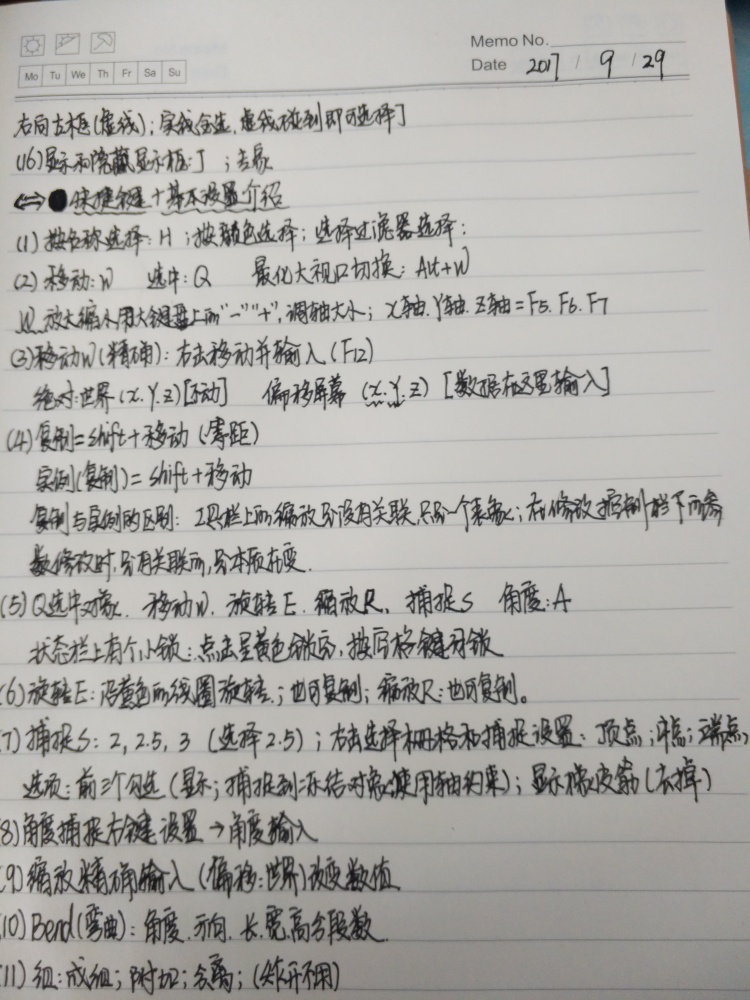 Memo No.
Mo Tu We Th Fr Sa Su
Date 2017 / 9 / 29
右向左框(虚线);实线全选,虚线碰到即可选择]
(16)显示和隐藏显示框:J ;去象
⇔●快捷键+基本设置介绍
(1)按名称选择:H ;按颜色选择;选择过滤器选择;
(2)移动:W 选中:Q 最化大视口切换:Alt+W
W 放大缩小用大键盘上的"-""+",调轴大小;X轴.Y轴.Z轴=F5.F6.F7
(3)移动W(精确):右击移动并输入(F12)
绝对:世界(X.Y.Z)[不动] 偏移屏幕(X.Y.Z)[数据在这里输入]
(4)复制=shift+移动(等距)
实例(复制)=shift+移动
复制与实例的区别:工具栏上的缩放另没有关联,只另一个表象;在修改控制栏下的参
数修改时,另有关联的,另本质在变.
(5)Q选中对象.移动W.旋转E.缩放R.捕捉S 角度:A
状态栏上有个小锁:点击呈黄色锁定,按空格键开锁
(6)旋转E:沿黄色的线圈旋转;也可复制;缩放R:也可复制。
(7)捕捉S:2,2.5,3(选择2.5);右击选择栅格和捕捉设置:顶点;中点;端点,
选项:前三个勾选(显示;捕捉到冻结对象;使用轴约束);显示橡皮筋(去掉)
(8)角度捕捉右键设置→角度输入
(9)缩放精确输入(偏移:世界)改变数值
(10)Bend(弯曲):角度.方向.长.宽.高分段数
(11)组:成组;附加;分离;(炸开不用)